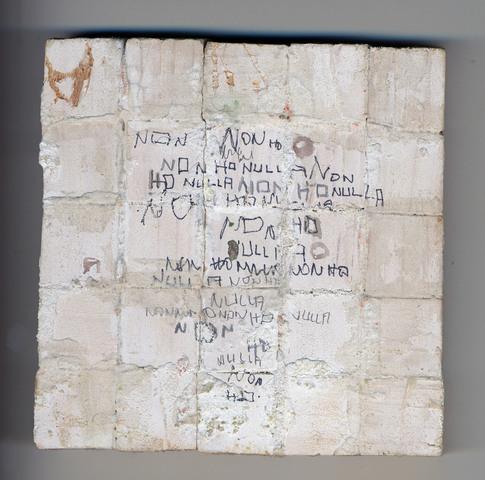 NON NON HO
NON HO NULLA NON
HO NULLA NON HO NULLA
NON HO
NULLA
NON HO NULLA NON HO
NULLA NON HO
NULLA
NON HO NULLA
NON
HO
NULLA
NON
HO